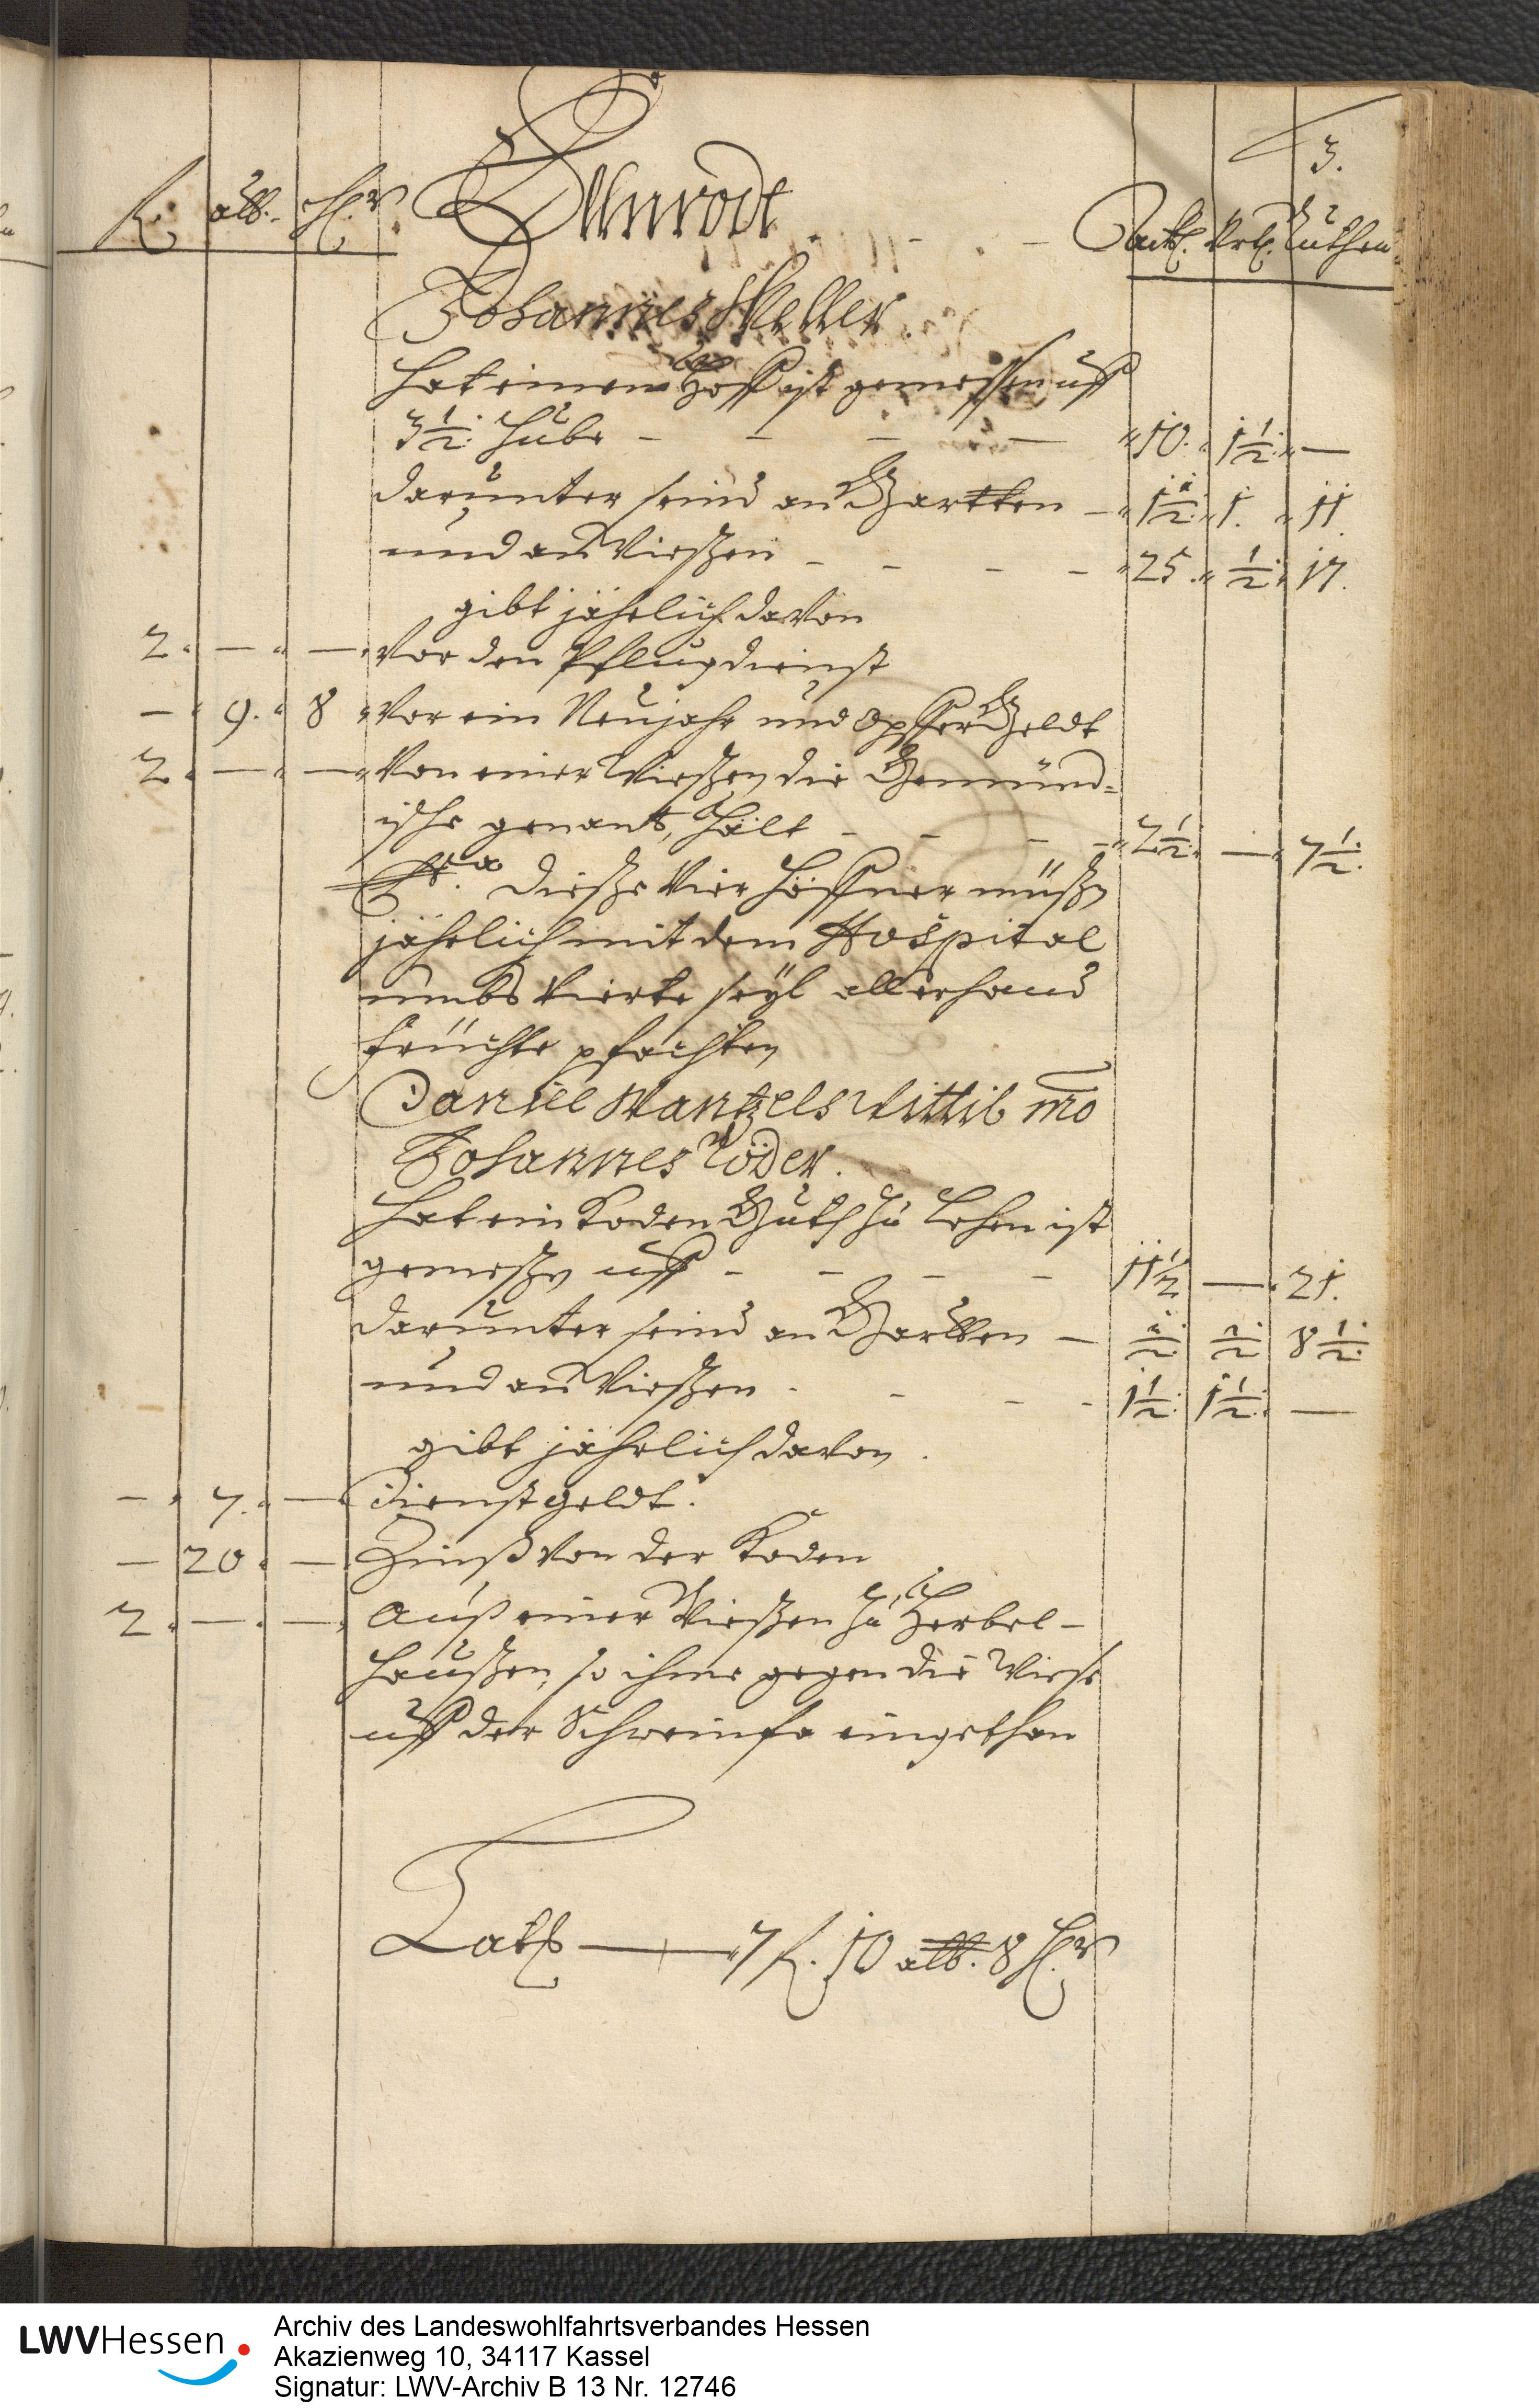 3.
fl. alb. hlr Ellnrodt Ack. Vrt. Ruthen
Johannes Keller.
hat einen Hoff ist gemessen uff
3 1/2. Hube - - - - 10. 1 1/2. —
darunter seind an Gartten — 1 1/2. 1. 11
und an Wießen - - - - 25. 1/2. 17.
gibt jährlich davon
2. — — Vor den Pflugdienst
— 9. 8 Vor ein Neujahr und OpfferGeldt
2. — — Von einer Wießen, die Gemünd-
ische genant, hält - - - 2 1/2. — 7 1/2.
Nta. Dieße Vier Höffner müßen
jährlich mit dem Hospital
umbs Vierte theyl allerhand
früchte pfachten
Daniel Wantzels Wittib mo
Johannes Röder.
hat ein Koden Guth zu Lehen ist
gemeßen uff - - - - 11 1/2 — 21.
darunter seind an Gartten — 1/2. 1/2 8 1/2.
und an Wießen - - - - 1 1/2. 1 1/2. —
gibt jährlich davon.
— 7. — Dienstgeldt.
— 20. — Zinß von der Koden
2. — — Auß einer Wießen zu Herbel-
haußen, so ihme gegen die Wiese
uff der Schweinfa eingethan
Lats — 7 fl. 10 alb. 8 hlr
LWVHessen
Archiv des Landeswohlfahrtsverbandes Hessen
Akazienweg 10, 34117 Kassel
Signatur: LWV-Archiv B 13 Nr. 12746